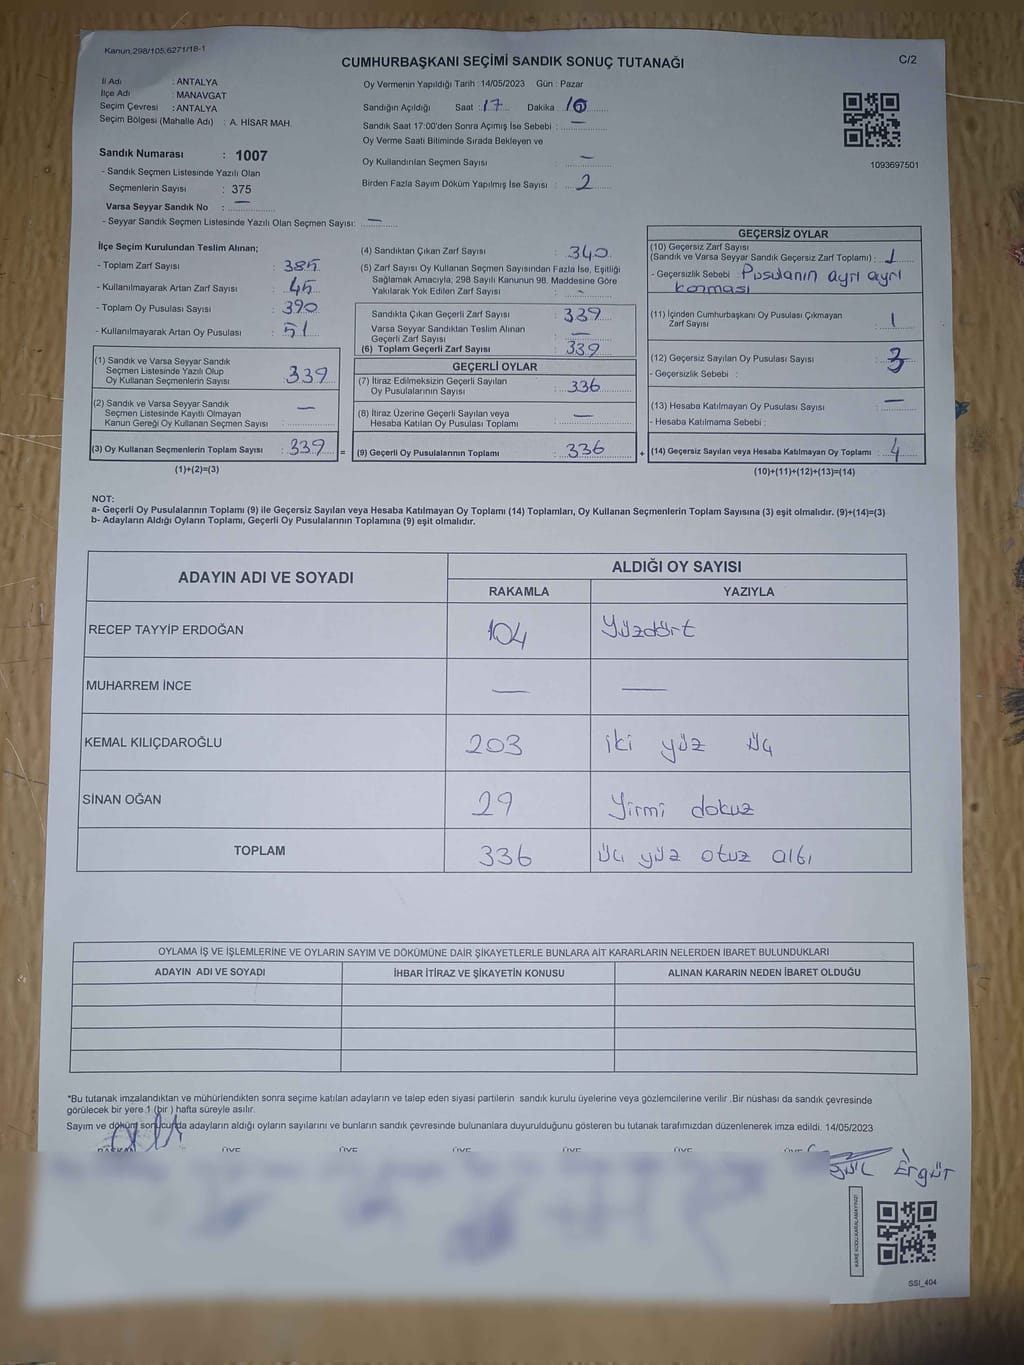 Kanun.298/105;6271/18-1
CUMHURBAŞKANI SEÇİMİ SANDIK SONUÇ TUTANAĞI
C/2
İl Adı : ANTALYA
İlçe Adı : MANAVGAT
Seçim Çevresi : ANTALYA
Seçim Bölgesi (Mahalle Adı) : A. HİSAR MAH.
Sandık Numarası : 1007
- Sandık Seçmen Listesinde Yazılı Olan
Seçmenlerin Sayısı : 375
Varsa Seyyar Sandık No : —
- Seyyar Sandık Seçmen Listesinde Yazılı Olan Seçmen Sayısı: —
Oy Vermenin Yapıldığı Tarih : 14/05/2023 Gün : Pazar
Sandığın Açıldığı Saat : 17 Dakika :
Sandık Saat 17:00'den Sonra Açımış İse Sebebi : —
Oy Verme Saati Bitiminde Sırada Bekleyen ve
Oy Kullandırılan Seçmen Sayısı : —
Birden Fazla Sayım Döküm Yapılmış İse Sayısı : 2
1093697501
İlçe Seçim Kurulundan Teslim Alınan;
- Toplam Zarf Sayısı : 385
- Kullanılmayarak Artan Zarf Sayısı : 45
- Toplam Oy Pusulası Sayısı : 390
- Kullanılmayarak Artan Oy Pusulası : 51
(1) Sandık ve Varsa Seyyar Sandık
Seçmen Listesinde Yazılı Olup
Oy Kullanan Seçmenlerin Sayısı : 339
(2) Sandık ve Varsa Seyyar Sandık
Seçmen Listesinde Kayıtlı Olmayan
Kanun Gereği Oy Kullanan Seçmen Sayısı : —
(3) Oy Kullanan Seçmenlerin Toplam Sayısı : 339 =
(1)+(2)=(3)
(4) Sandıktan Çıkan Zarf Sayısı : 340
(5) Zarf Sayısı Oy Kullanan Seçmen Sayısından Fazla İse, Eşitliği
Sağlamak Amacıyla, 298 Sayılı Kanunun 98. Maddesine Göre
Yakılarak Yok Edilen Zarf Sayısı : -
Sandıkta Çıkan Geçerli Zarf Sayısı : 339
Varsa Seyyar Sandıktan Teslim Alınan
Geçerli Zarf Sayısı : —
(6) Toplam Geçerli Zarf Sayısı : 339
GEÇERLİ OYLAR
(7) İtiraz Edilmeksizin Geçerli Sayılan
Oy Pusulalarının Sayısı : 336
(8) İtiraz Üzerine Geçerli Sayılan veya
Hesaba Katılan Oy Pusulası Toplamı : —
(9) Geçerli Oy Pusulalarının Toplamı : 336 +
GEÇERSİZ OYLAR
(10) Geçersiz Zarf Sayısı
(Sandık ve Varsa Seyyar Sandık Geçersiz Zarf Toplamı) : 1
- Geçersizlik Sebebi : Pusulanın ayrı ayrı
konması
(11) İçinden Cumhurbaşkanı Oy Pusulası Çıkmayan
Zarf Sayısı : 1
(12) Geçersiz Sayılan Oy Pusulası Sayısı : 3
- Geçersizlik Sebebi :
(13) Hesaba Katılmayan Oy Pusulası Sayısı : —
- Hesaba Katılmama Sebebi :
(14) Geçersiz Sayılan veya Hesaba Katılmayan Oy Toplamı : 4
(10)+(11)+(12)+(13)=(14)
NOT:
a- Geçerli Oy Pusulalarının Toplamı (9) ile Geçersiz Sayılan veya Hesaba Katılmayan Oy Toplamı (14) Toplamları, Oy Kullanan Seçmenlerin Toplam Sayısına (3) eşit olmalıdır. (9)+(14)=(3)
b- Adayların Aldığı Oyların Toplamı, Geçerli Oy Pusulalarının Toplamına (9) eşit olmalıdır.
ADAYIN ADI VE SOYADI ALDIĞI OY SAYISI
RAKAMLA YAZIYLA
RECEP TAYYİP ERDOĞAN 104 Yüzdört
MUHARREM İNCE — —
KEMAL KILIÇDAROĞLU 203 iki yüz üç
SİNAN OĞAN 29 Yirmi dokuz
TOPLAM 336 üç yüz otuz altı
OYLAMA İŞ VE İŞLEMLERİNE VE OYLARIN SAYIM VE DÖKÜMÜNE DAİR ŞİKAYETLERLE BUNLARA AİT KARARLARIN NELERDEN İBARET BULUNDUKLARI
ADAYIN ADI VE SOYADI İHBAR İTİRAZ VE ŞİKAYETİN KONUSU ALINAN KARARIN NEDEN İBARET OLDUĞU
*Bu tutanak imzalandıktan ve mühürlendikten sonra seçime katılan adayların ve talep eden siyasi partilerin sandık kurulu üyelerine veya gözlemcilerine verilir .Bir nüshası da sandık çevresinde
görülecek bir yere 1 (bir ) hafta süreyle asılır.
Sayım ve döküm sonucunda adayların aldığı oyların sayılarını ve bunların sandık çevresinde bulunanlara duyurulduğunu gösteren bu tutanak tarafımızdan düzenlenerek imza edildi. 14/05/2023
BAŞKAN ÜYE ÜYE ÜYE ÜYE ÜYE ÜYE
Ergür
KARE KODU KARALAMAYINIZ!
SSI_404